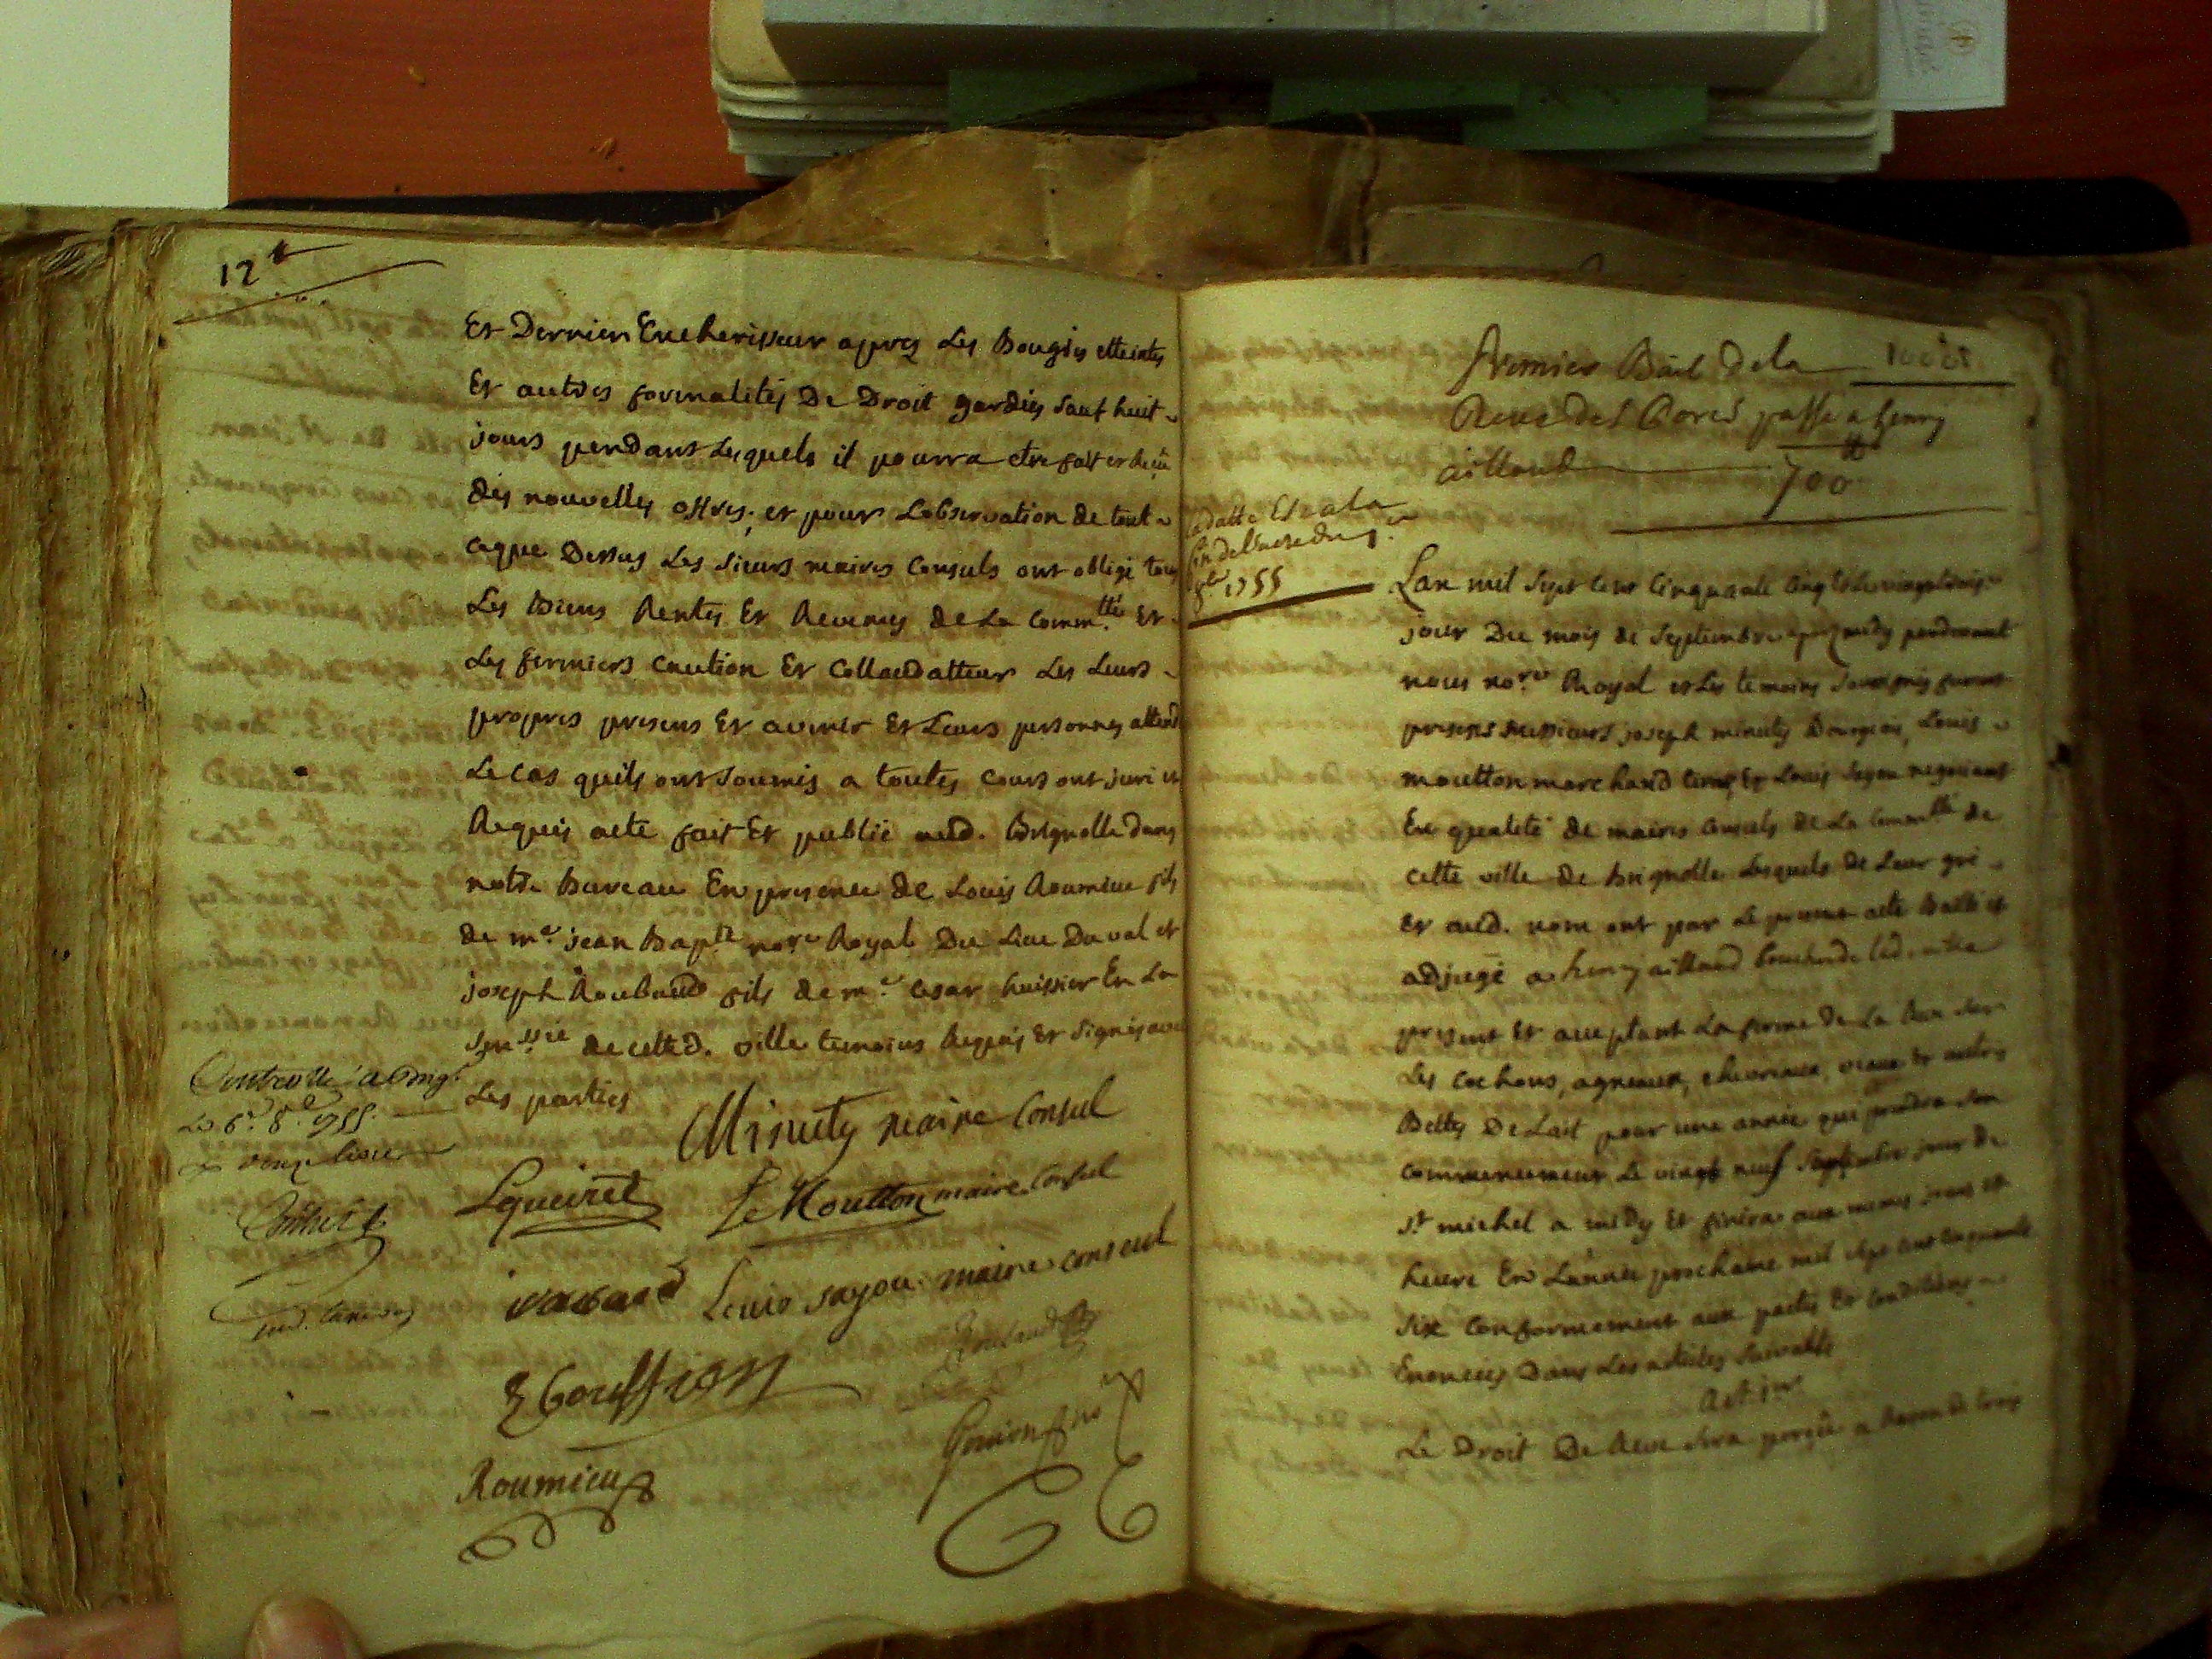 12 #
Et Dernier Encherisseur apres Les Bougies etteintes
Et autres formalites De Droit gardées sauf huit
jours pendant Lesquels il pourra etre fait et reçu
des nouvelles offres; et pour Lobservation de tout
ceque Dessus Les sieurs maires Consuls ont obligé tous
Les biens Rentes Et Revenus de La Comm.tté Et
Les fermiers Caution Et Collaudatteur Les Leurs
propres presens Et avenir Et Leurs personnes attendu
Le cas quils ont soumis a toutes Cours ont juré et
Requis acte fait Et publié aud. Brignolle dans
notre bureau En presence de Louis Roumieu fils
de m.e jean Bap.te no.re Royal Du Lieu Du val et
joseph Roubaud fils de m.e Cesar huissier En La
de cette d. ville temoins Requis Et signés avec
Les parties
Minuty maire Consul
Controllé a Brig.
Le 6.e 8.e 1755.
Le Moutton maire Consul
Louis sayou maire consul
Roubaud
Roumieu
Premier Bail dela
Reve des Porcs passé a henry
aillaud 700 #
1755
Lan mil sept cent Cinquante Cinq Et Le vingt trois
jour Du mois de Septembre apres midy pardevant
nous no.re Royal et Les temoins soussignés furent
presens messieurs joseph minuty Bourgeois, Louis
moutton marchand et Louis sayou negociant
En qualité de maires Consuls de La Comm.tté de
cette ville de brignolle Lesquels de Leur gré
Et aud. nom ont par Le present acte Bailli et
adjugé a henry aillaud boucher de lad. ville
present Et acceptant La ferme de La Reve sur
Les Cochons, agneaux, chevreaux, veaux Et autres
Bettes De Lait pour une année qui prendra son
commencement Le vingt neuf Septembre jour de
St michel a midy Et finira aux memes jour et
heure En L'année prochaine mil sept cent cinquante
six Conformement aux pactes Et Conditions
Enoncées Dans Les articles suivants
Art. 1er
Le Droit De Reve sera perçu a Raison de